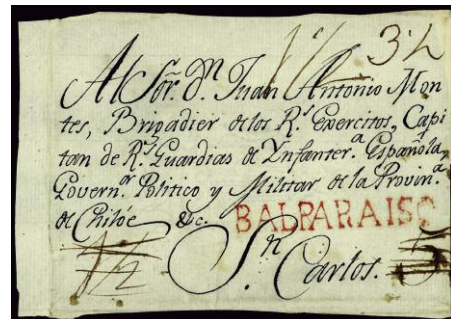 3½
Al Sor. Dn. Juan Antonio Mon
tes, Brigadier de los Rs. Exercitos, Capi
tan de Rs. Guardias de Ynfantera. Española,
Governor. Politico y Militar de la Provina.
de Chiloe &c.
BALPARAISO
Sn. Carlos.